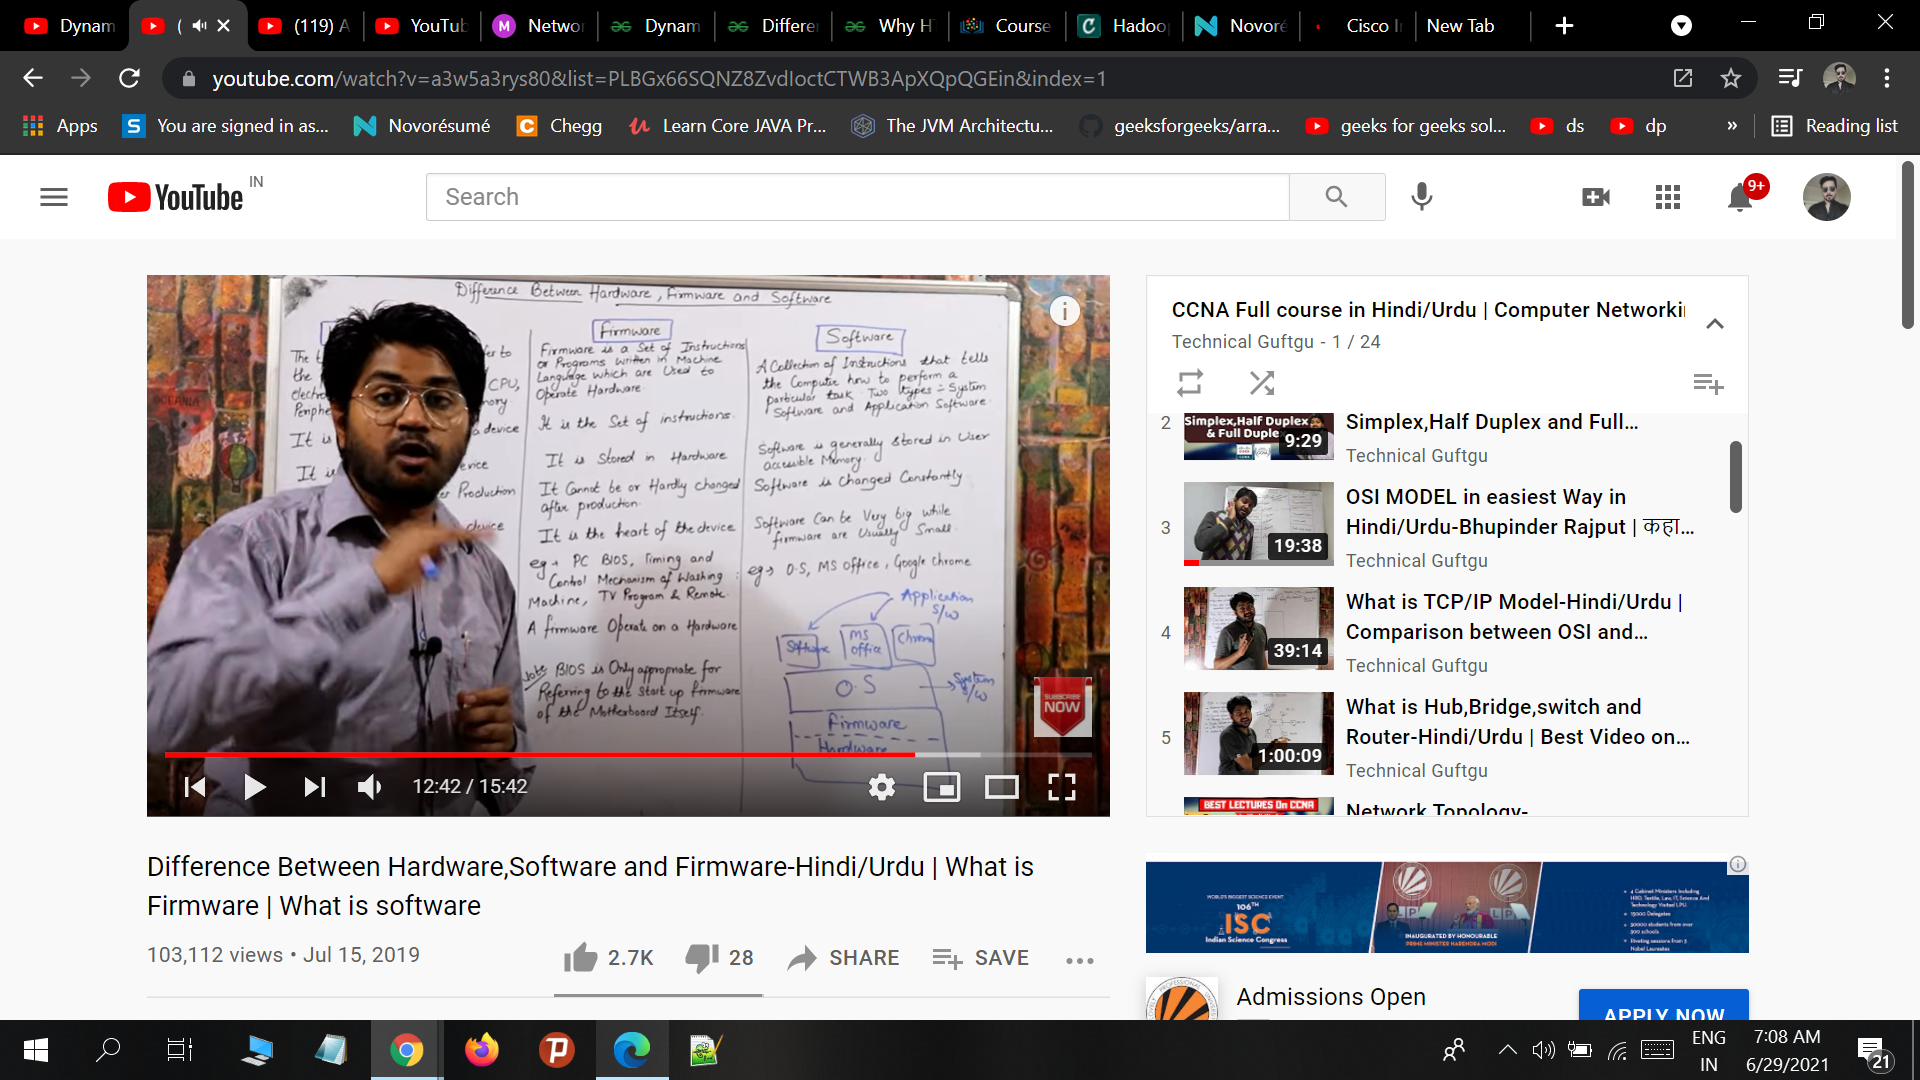 Dynam
(
(119) A
YouTub
Networ
Dynam
Differen
Why H
Course
Hadoop
Novoré
Cisco I
New Tab
youtube.com/watch?v=a3w5a3rys80&list=PLBGx66SQNZ8ZvdIoctCTWB3ApXQpQGEin&index=1
Apps
You are signed in as...
Novorésumé
Chegg
Learn Core JAVA Pr...
The JVM Architectu...
geeksforgeeks/arra...
geeks for geeks sol...
ds
dp
»
Reading list
YouTube IN
Search
9+
Difference Between Hardware, Firmware and Software
Firmware
Firmware is a Set of Instructions
or Programs written in Machine
Language which are Used to
Operate Hardware.
It is the Set of instructions.
It is Stored in Hardware
It Cannot be or Hardly changed
after production.
It is the heart of the device
eg → PC BIOS, Timing and
Control Mechanism of Washing
Machine, TV Program & Remote.
A firmware Operate on a Hardware
Note BIOS is Only appropriate for
Referring to the Start up firmware
of the Motherboard Itself.
Software
A Collection of Instructions that tells
the Computer how to perform a
particular task. Two types = System
Software and Application Software.
Software is generally stored in User
accessible Memory.
Software is Changed Constantly
Software Can be Very big while
firmware are Usually Small.
eg → O.S, MS Office, Google Chrome
Application
S/W
Software
MS
office
Chrome
O.S
System
S/W
Firmware
Hardware
CPU,
a device
Production
device
It is
It is
SUBSCRIBE
NOW
12:42 / 15:42
CCNA Full course in Hindi/Urdu | Computer Networki
Technical Guftgu - 1 / 24
2
Simplex,Half Duplex
& Full Duplex
9:29
Simplex,Half Duplex and Full...
Technical Guftgu
3
19:38
OSI MODEL in easiest Way in
Hindi/Urdu-Bhupinder Rajput | कहा...
Technical Guftgu
4
39:14
What is TCP/IP Model-Hindi/Urdu |
Comparison between OSI and...
Technical Guftgu
5
1:00:09
What is Hub,Bridge,switch and
Router-Hindi/Urdu | Best Video on...
Technical Guftgu
BEST LECTURES On CCNA
Network Topology-
Difference Between Hardware,Software and Firmware-Hindi/Urdu | What is
Firmware | What is software
103,112 views • Jul 15, 2019
2.7K
28
SHARE
SAVE
WORLD'S BIGGEST SCIENCE EVENT
106TH
ISC
Indian Science Congress
INAUGURATED BY HONOURABLE
PRIME MINISTER NARENDRA MODI
4 Cabinet Ministers Including
HRD, Textile, Law, IT, Science And
Technology Visited LPU.
15000 Delegates
Admissions Open
APPLY NOW
ENG
IN
7:08 AM
6/29/2021
21